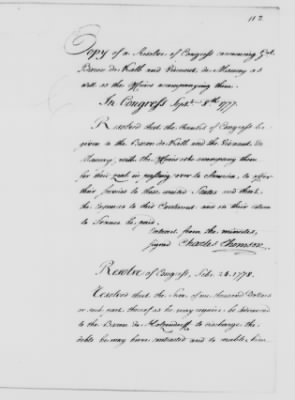 112
Copy of a Resolve of Congress concerning Gel.
Baron de Kalb and Viscount de Mauroy as
well as the Officers accompanying them.
In Congress Septr. 8th. 1777.
Resolved that the thanks of Congress be
given to the Baron de Kalb and the Viscount de
Mauroy, with the Officers who accompany them
for their zeal in passing over to America, to offer
their services to these united States and that
the expences to this Continent and on their return
to France be paid.
Extract from the minutes,
signed Charles Thomson
Resolve of Congress, Feb. 26. 1778.
Resolved that the Sum of one thousand Dollars
or such part thereof as may be advanced
to the Baron de Holzendorff, to discharge the
debts he may have contracted and to enable him